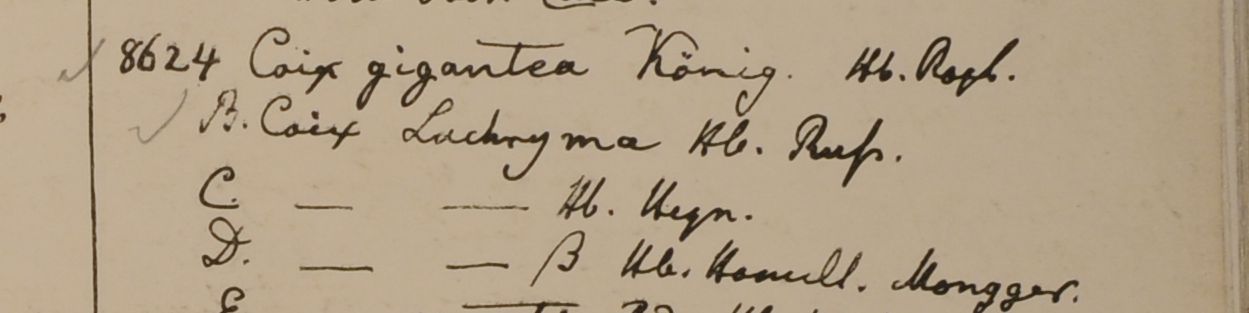 8624 Coix gigantea König. Hb. Roxb.
B. Coix Lachryma Hb. Russ.
C. — — Hb. Heyn.
D. — — β Hb. Hamill. Mongger.
E